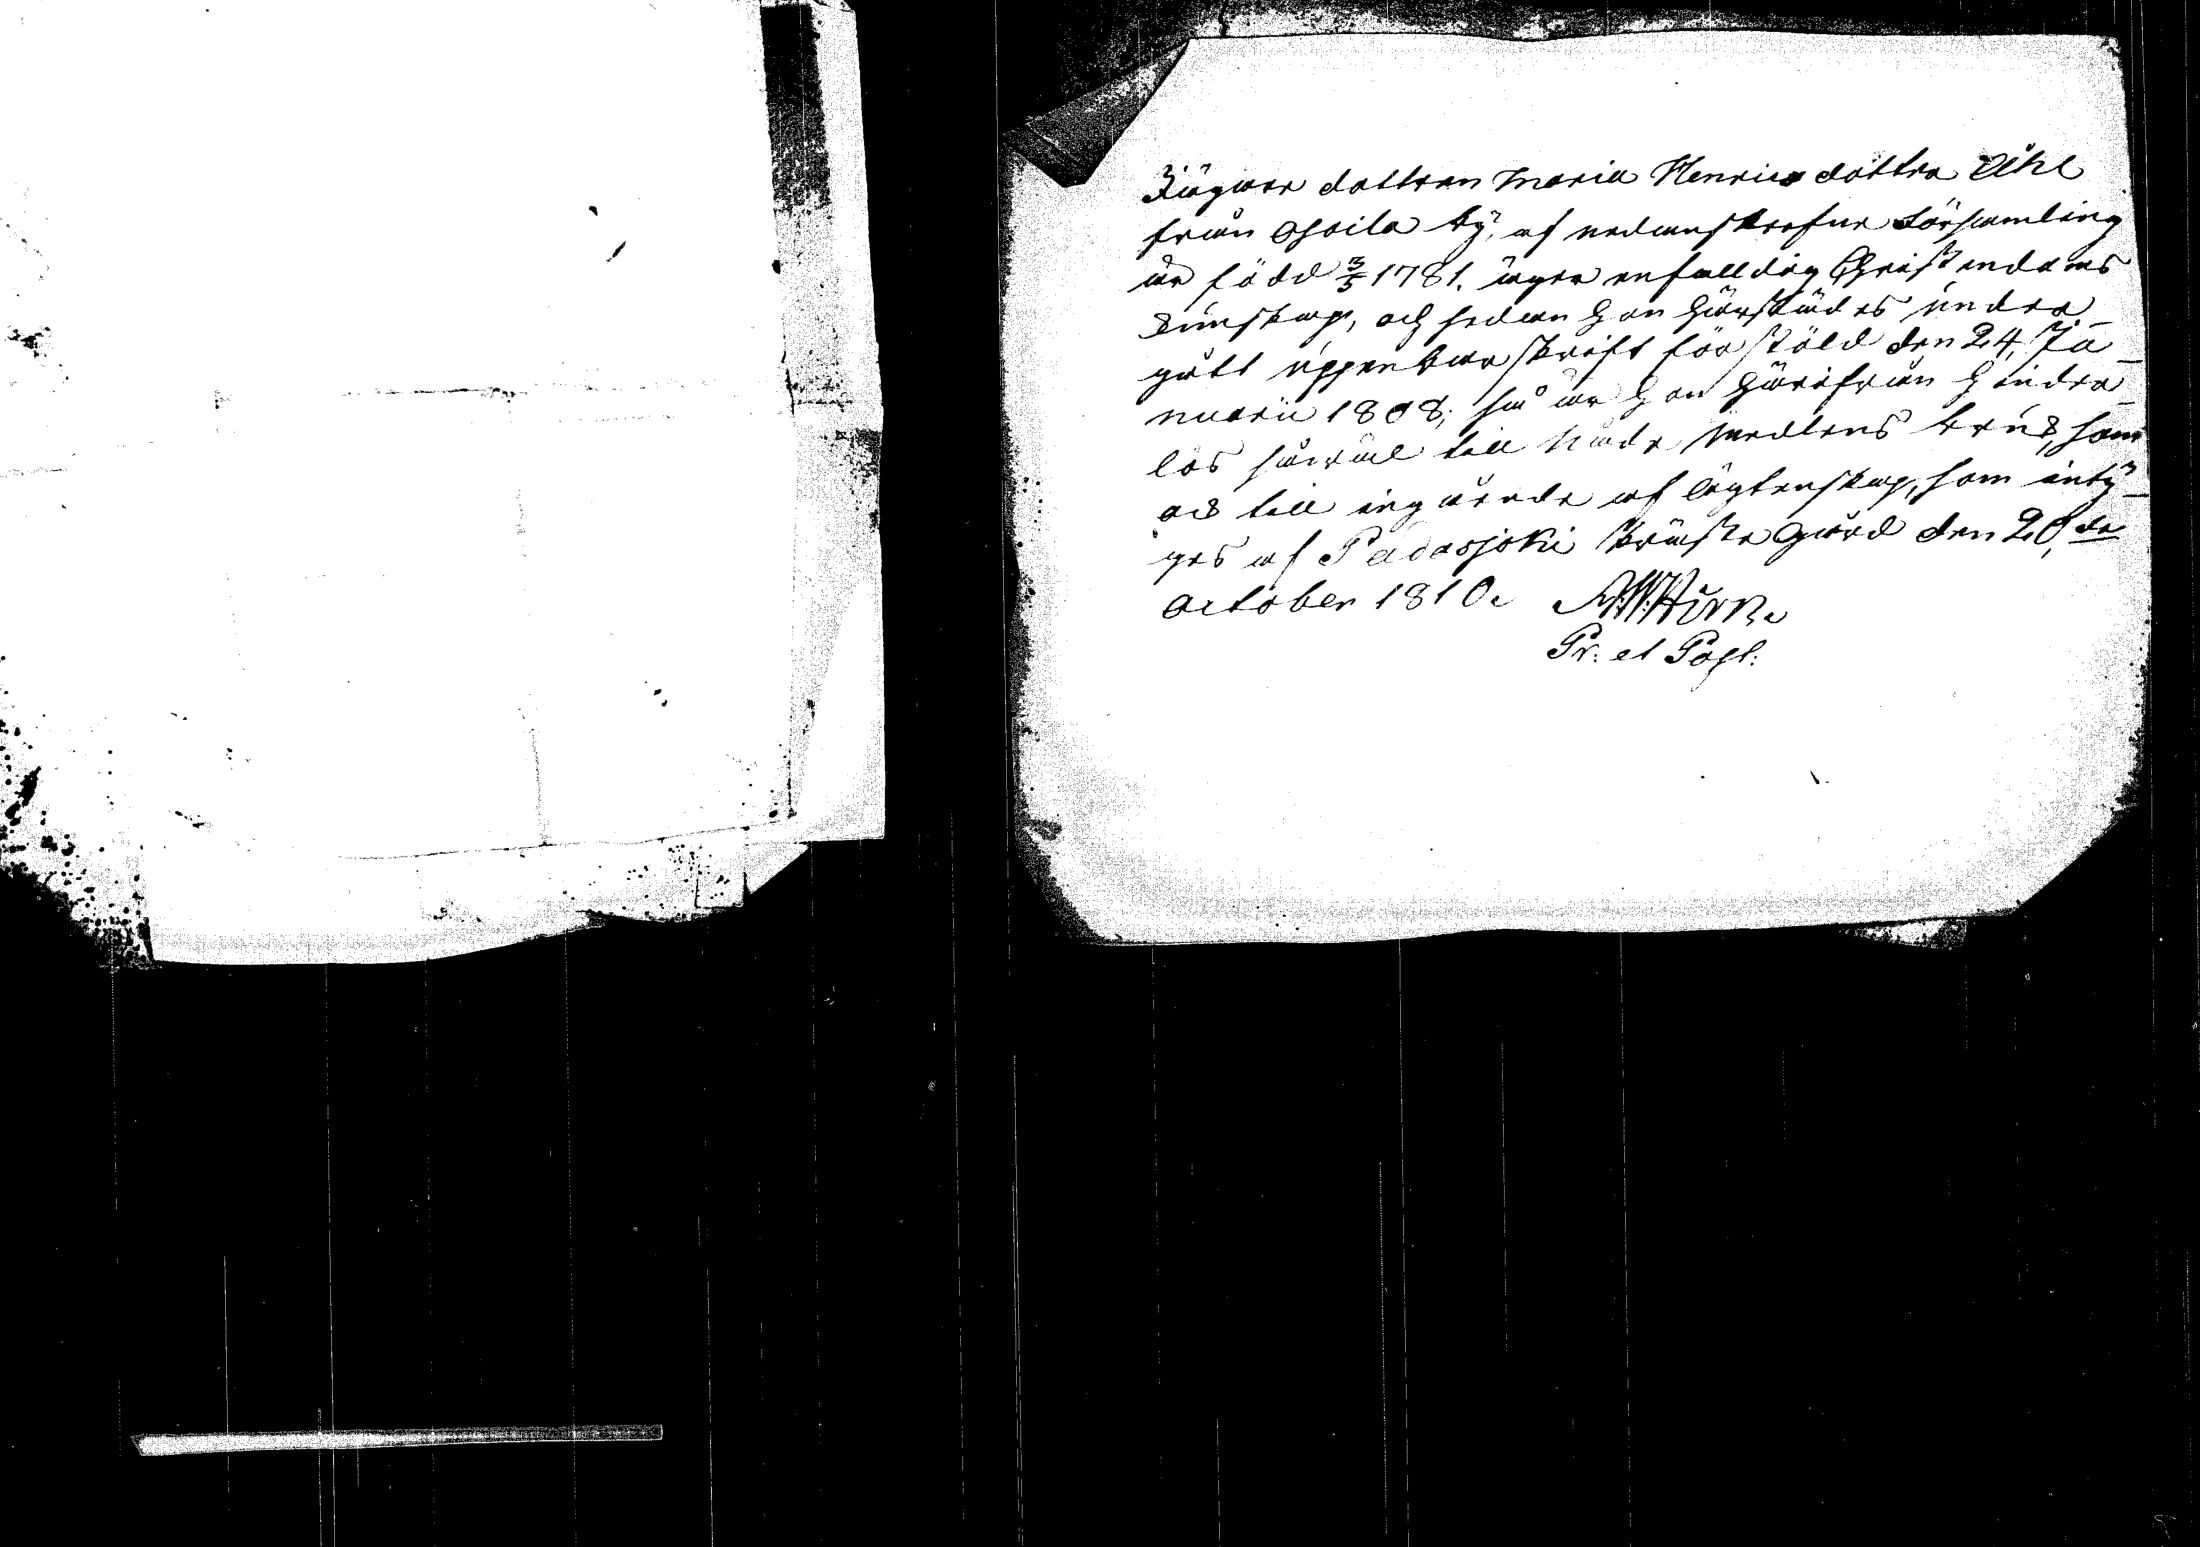 Jägare dottren Maria Henrics dotter Åhl
från Osoila by, af nedanskrefne Församling
är född 3/5 1781. äger enfalldig Christendoms
kunskap, och sedan hon härstädes under_
gått uppenbar skrift förstöld den 24, Ja_
nuarii 1808; så är hon härifrån hinder_
lös såwäl till Nåde medlens bruk, som
ock till ingående af ägtenskap, som inty_
ges af Padasjoki Präste Gård den 20,de
October 1810.
Pr: et Past: